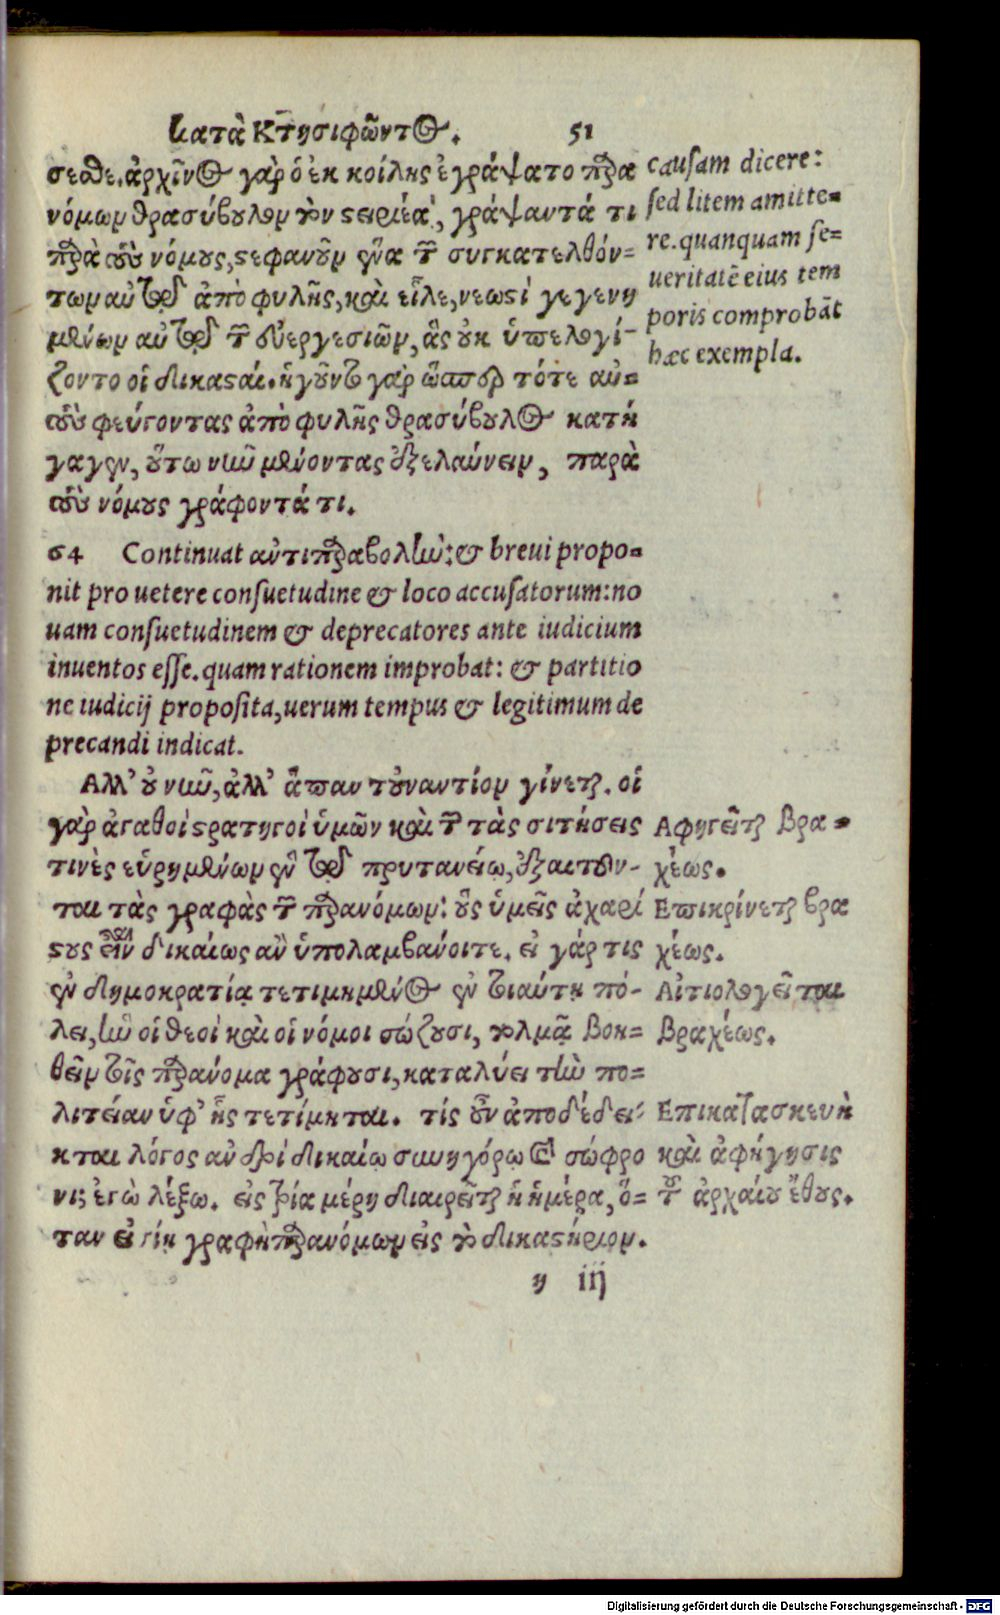 κατὰ Κτησιφῶντος. 51
σεσθε. ἀρχῖνος γὰρ ὁ ἐκ κοίλης ἐγράψατο παρα
νόμων θρασύβουλον τὸν στειριέα, γράψαντά τι
παρὰ τοὺς νόμους, στεφανοῦν ἕνα τῶν συγκατελθόν-
των αὐτῷ ἀπὸ φυλῆς, καὶ εἷλε, νεωστὶ γεγενη
μένων αὐτῷ τῶν εὐεργεσιῶν, ἃς οὐκ ὑπελογί-
ζοντο οἱ δικασταί. ἡγοῦντο γὰρ ὥσπερ τότε αὐ-
τοὺς φεύγοντας ἀπὸ φυλῆς θρασύβουλος κατή
γαγεν, οὕτω νῦν μένοντας ἐξελαύνειν, παρὰ
τοὺς νόμους γράφοντά τι.
64 Continuat αὐτιπαραβολὴν: & breui propo-
nit pro uetere consuetudine & loco accusatorum: no
uam consuetudinem & deprecatores ante iudicium
inuentos esse. quam rationem improbat: & partitio
ne iudicij proposita, uerum tempus & legitimum de
precandi indicat.
Ἀλλ' οὐ νῦν, ἀλλ' ἅπαν τοὐναντίον γίνεται. οἱ
γὰρ ἀγαθοὶ στρατηγοὶ ὑμῶν καὶ τῶν τὰς σιτήσεις
τινὲς εὑρημένων ἐν τῷ πρυτανείῳ, ἐξαιτοῦν-
ται τὰς γραφὰς τῶν παρανόμων: οὓς ὑμεῖς ἀχαρί
στους εἶναι δικαίως ἂν ὑπολαμβάνοιτε. εἰ γάρ τις
ἐν δημοκρατίᾳ τετιμημένος ἐν τοιαύτῃ πό-
λει, ἣν οἱ θεοὶ καὶ οἱ νόμοι σώζουσι, τολμᾷ βοη-
θεῖν τοῖς παράνομα γράφουσι, καταλύει τὴν πο-
λιτείαν ὑφ' ἧς τετίμηται. τίς οὖν ἀποδέδει-
κται λόγος ἀνδρὶ δικαίῳ συνηγόρῳ καὶ σώφρο
νι; ἐγὼ λέξω. εἰς τρία μέρη διαιρεῖται ἡ ἡμέρα, ὅ-
ταν εἰσίῃ γραφὴ παρανόμων εἰς τὸ δικαστήριον.
η iij
causam dicere:
sed litem amitte-
re. quanquam se-
ueritatē eius tem
poris comprobāt
hæc exempla.
Ἀφηγεῖται βρα-
χέως.
Ἐπικρίνεται βρα
χέως.
Αἰτιολογεῖται
βραχέως.
Ἐπικατασκευὴ
καὶ ἀφήγησις
τοῦ ἀρχαίου ἔθους.
Digitalisierung gefördert durch die Deutsche Forschungsgemeinschaft - DFG